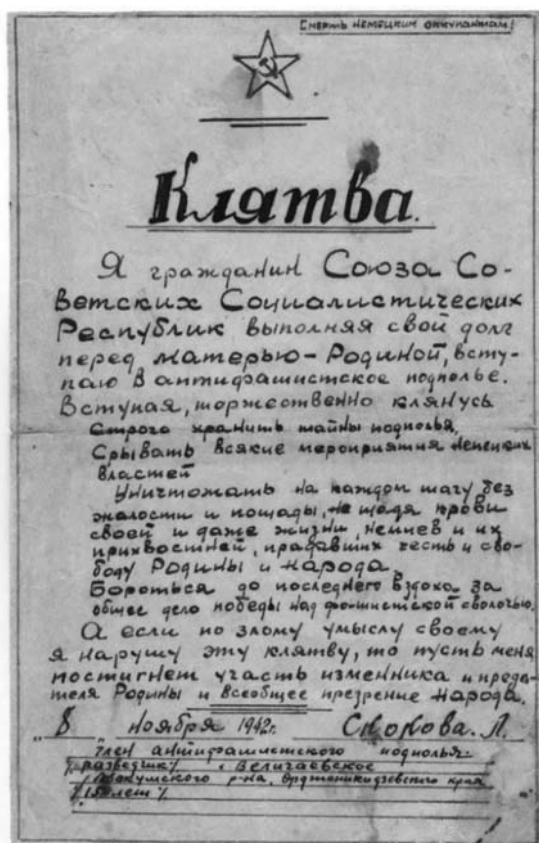 Смерть немецким оккупантам!
Клятва.
Я гражданин Союза Со-
ветских Социалистических
Республик выполняя свой долг
перед матерью-Родиной, всту-
паю в антифашистское подполье.
Вступая, торжественно клянусь
Строго хранить тайны подполья,
Срывать всякие мероприятия немецких
властей
Уничтожать на каждом шагу без
жалости и пощады, не щадя крови
своей и даже жизни, немцев и их
прихвостней, продавших честь и сво-
боду Родины и народа.
Бороться до последнего вздоха за
общее дело победы над фашистской сволочью.
А если по злому умыслу своему
я нарушу эту клятву, то пусть меня
постигнет участь изменника и преда-
теля Родины и всеобщее презрение народа.
"8" ноября 1942г. Скокова. Л.
Член антифашистского подполья
разведчик с. Величаевское
р-на, Орджоникидзевского края